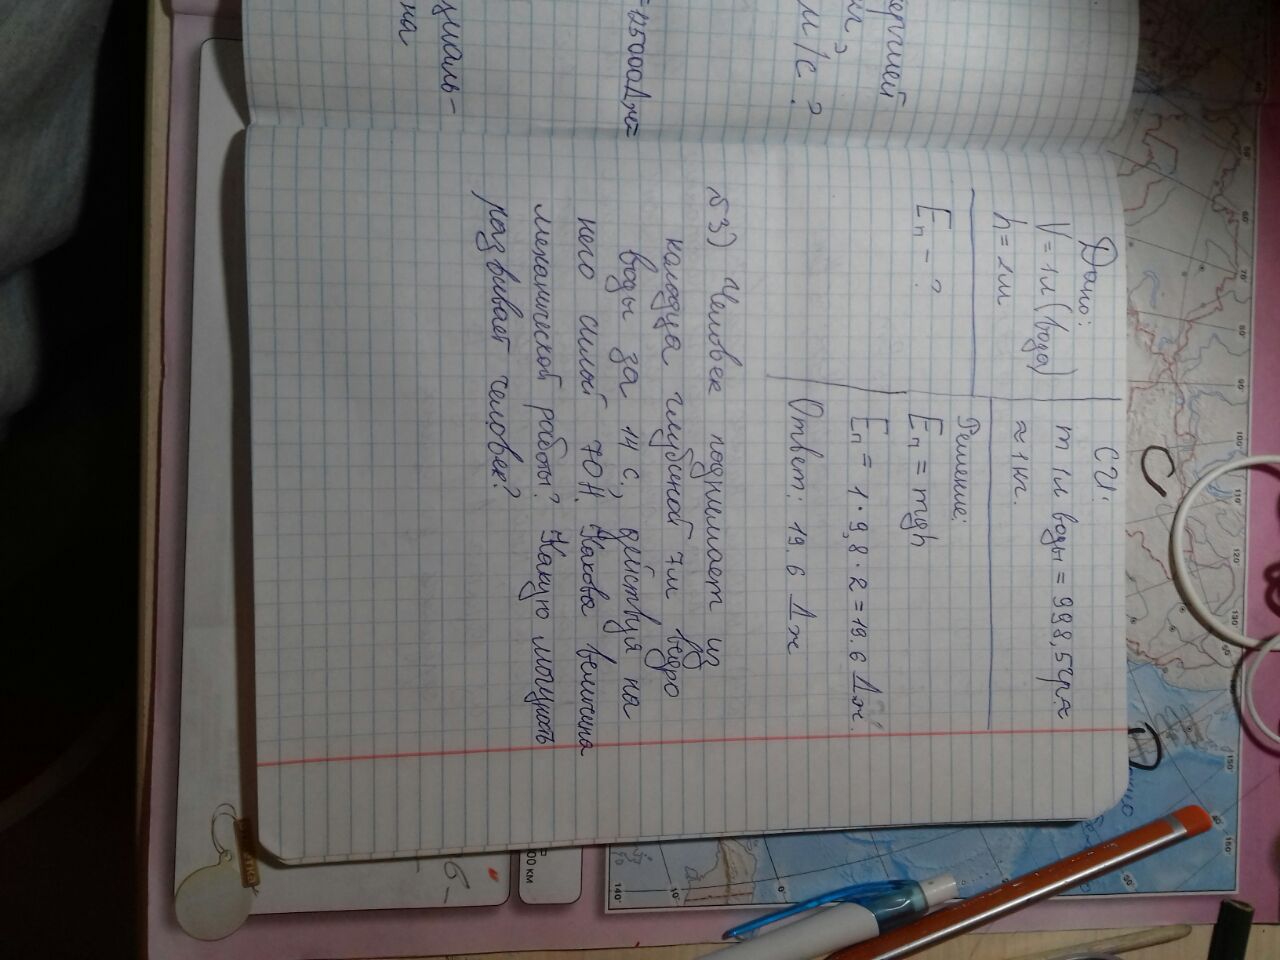 =125000Дж
м/с?
Дано:
V=1л (вода)
h=2м
Eп - ?
СИ:
m 1л воды = 998,5гр ≈
≈ 1кг.
Решение:
Eп = mgh
Eп = 1·9,8·2=19.6 Дж.
Ответ: 19.6 Дж
№3) Человек поднимает из
колодца глубиной 7м ведро
воды за 14 с, действуя на
него силой 70Н. Какова величина
механической работы? Какую мощность
развивает человек?